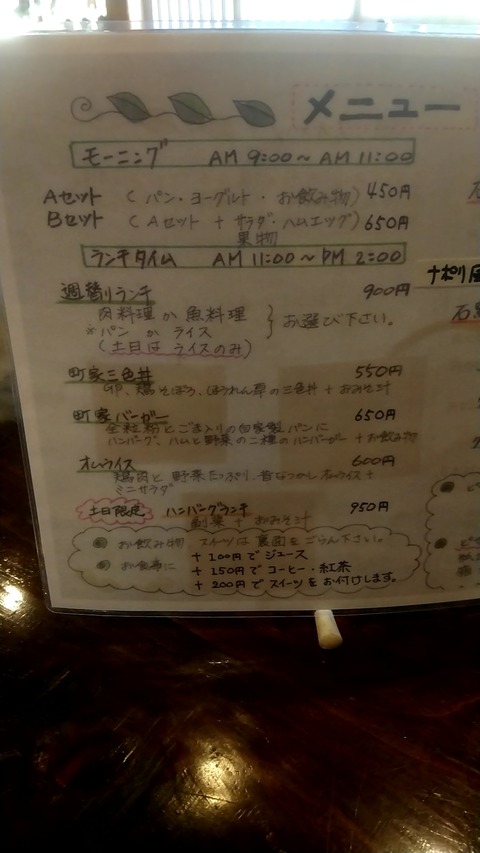 メニュー
モーニング AM 9:00～AM 11:00
Aセット (パン・ヨーグルト・お飲み物) 450円
Bセット (Aセット + サラダ・ハムエッグ) 650円
果物
ランチタイム AM 11:00～PM 2:00
週替りランチ 900円
肉料理 か 魚料理
※パン か ライス } お選び下さい。
(土日は ライスのみ)
町家三色丼 550円
卵、鶏そぼろ、ほうれん草の三色丼 + おみそ汁
町家バーガー 650円
全粒粉とごま入りの自家製パンに
ハンバーグ、ハムと野菜の二種のハンバーガー + お飲み物
オムライス 600円
鶏肉と野菜たっぷり、昔なつかしオムライス +
ミニサラダ
土日限定 ハンバーグランチ 950円
副菜 + おみそ汁
お飲み物 スイーツは裏面をごらん下さい。
お食事に + 100円で ジュース
+ 150円で コーヒー・紅茶
+ 200円で スイーツをお付けします。
ナポリ